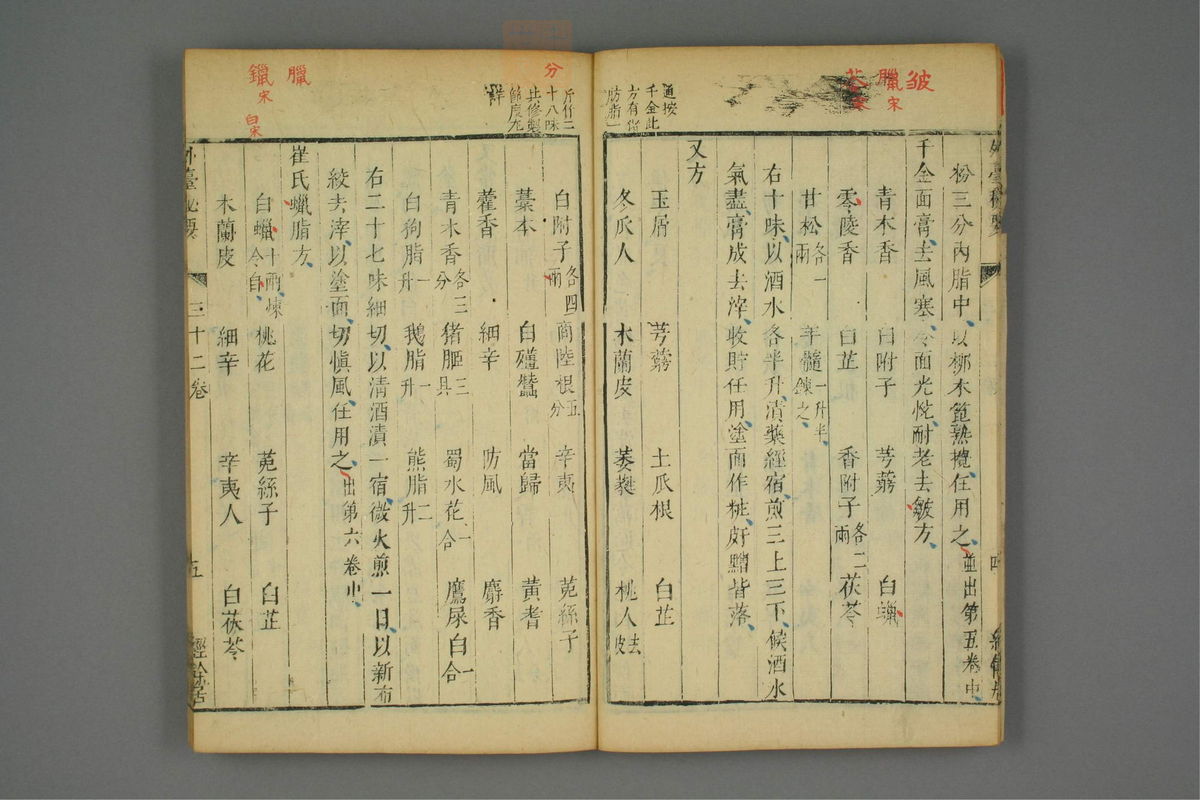 皴
臘
宋
分
通按
千金此
外臺秘要
粉三分內脂中以栁木箆熟攪任用之並出第五卷中
千金面膏去風塞令面光悅耐老去皺方
青木香 白附子 芎藭 白蠟
零陵香 白芷 香附子各二兩 茯苓
甘松各一兩 羊髓一升半鍊之
右十味以酒水各半升漬藥經宿煎三上三下候酒水
氣盡膏成去滓收貯任用塗面作粧皯䵟皆落
又方
玉屑 芎藭 土瓜根 白芷
冬瓜人 木蘭皮 萎蕤 桃人去皮
十八味
白附子各四兩 商陸根五分 辛夷 菟絲子
藁本 白殭蠶 當歸 黃耆
藿香 細辛 防風 麝香
青木香各三分 猪胰三具 蜀水花一合 鷹屎白一合
白狗脂一升 鵝脂一升 熊脂二升
右二十七味細切以清酒漬一宿微火煎一日以新布
絞去滓以塗面切慎風任用之出第六卷中
臘
鑞
宋
白宋
崔氏蠟脂方
白蠟十兩煉令白 桃花 菟絲子 白芷
木蘭皮 細辛 辛夷人 白茯苓
外臺秘要
三十二卷
五
經餘居